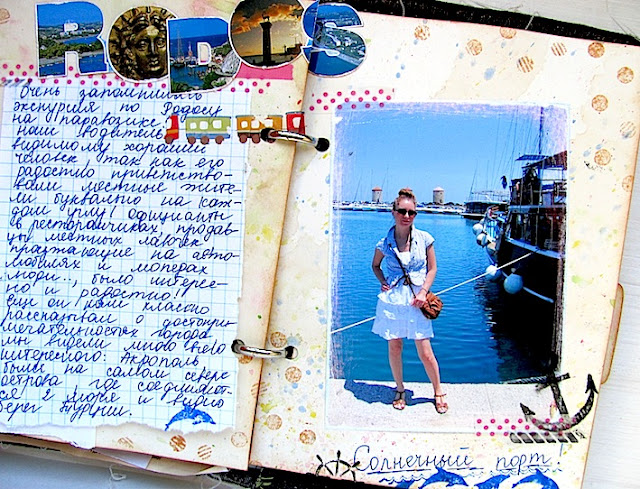 RODOS
Очень запомнилась
экскурсия по Родосу
на паравзике
наш водитель
видимому хороший
человек, так как его
радостно приветство-
вали местные жите-
ли буквально на каж-
дом углу! официанты
в ресторанчиках, продав-
цы местных лавочек
проезжающие на авто-
мобилях и моперах
люди.., было интерес-
но и радостно!
еще он нам классно
рассказывал о достопри-
мечательностях города
мы видели много всего
интересного: Акрополь
были на самом севере
острова где соединяют-
ся 2 моря и видно
берег Турции.
Солнечный порт!